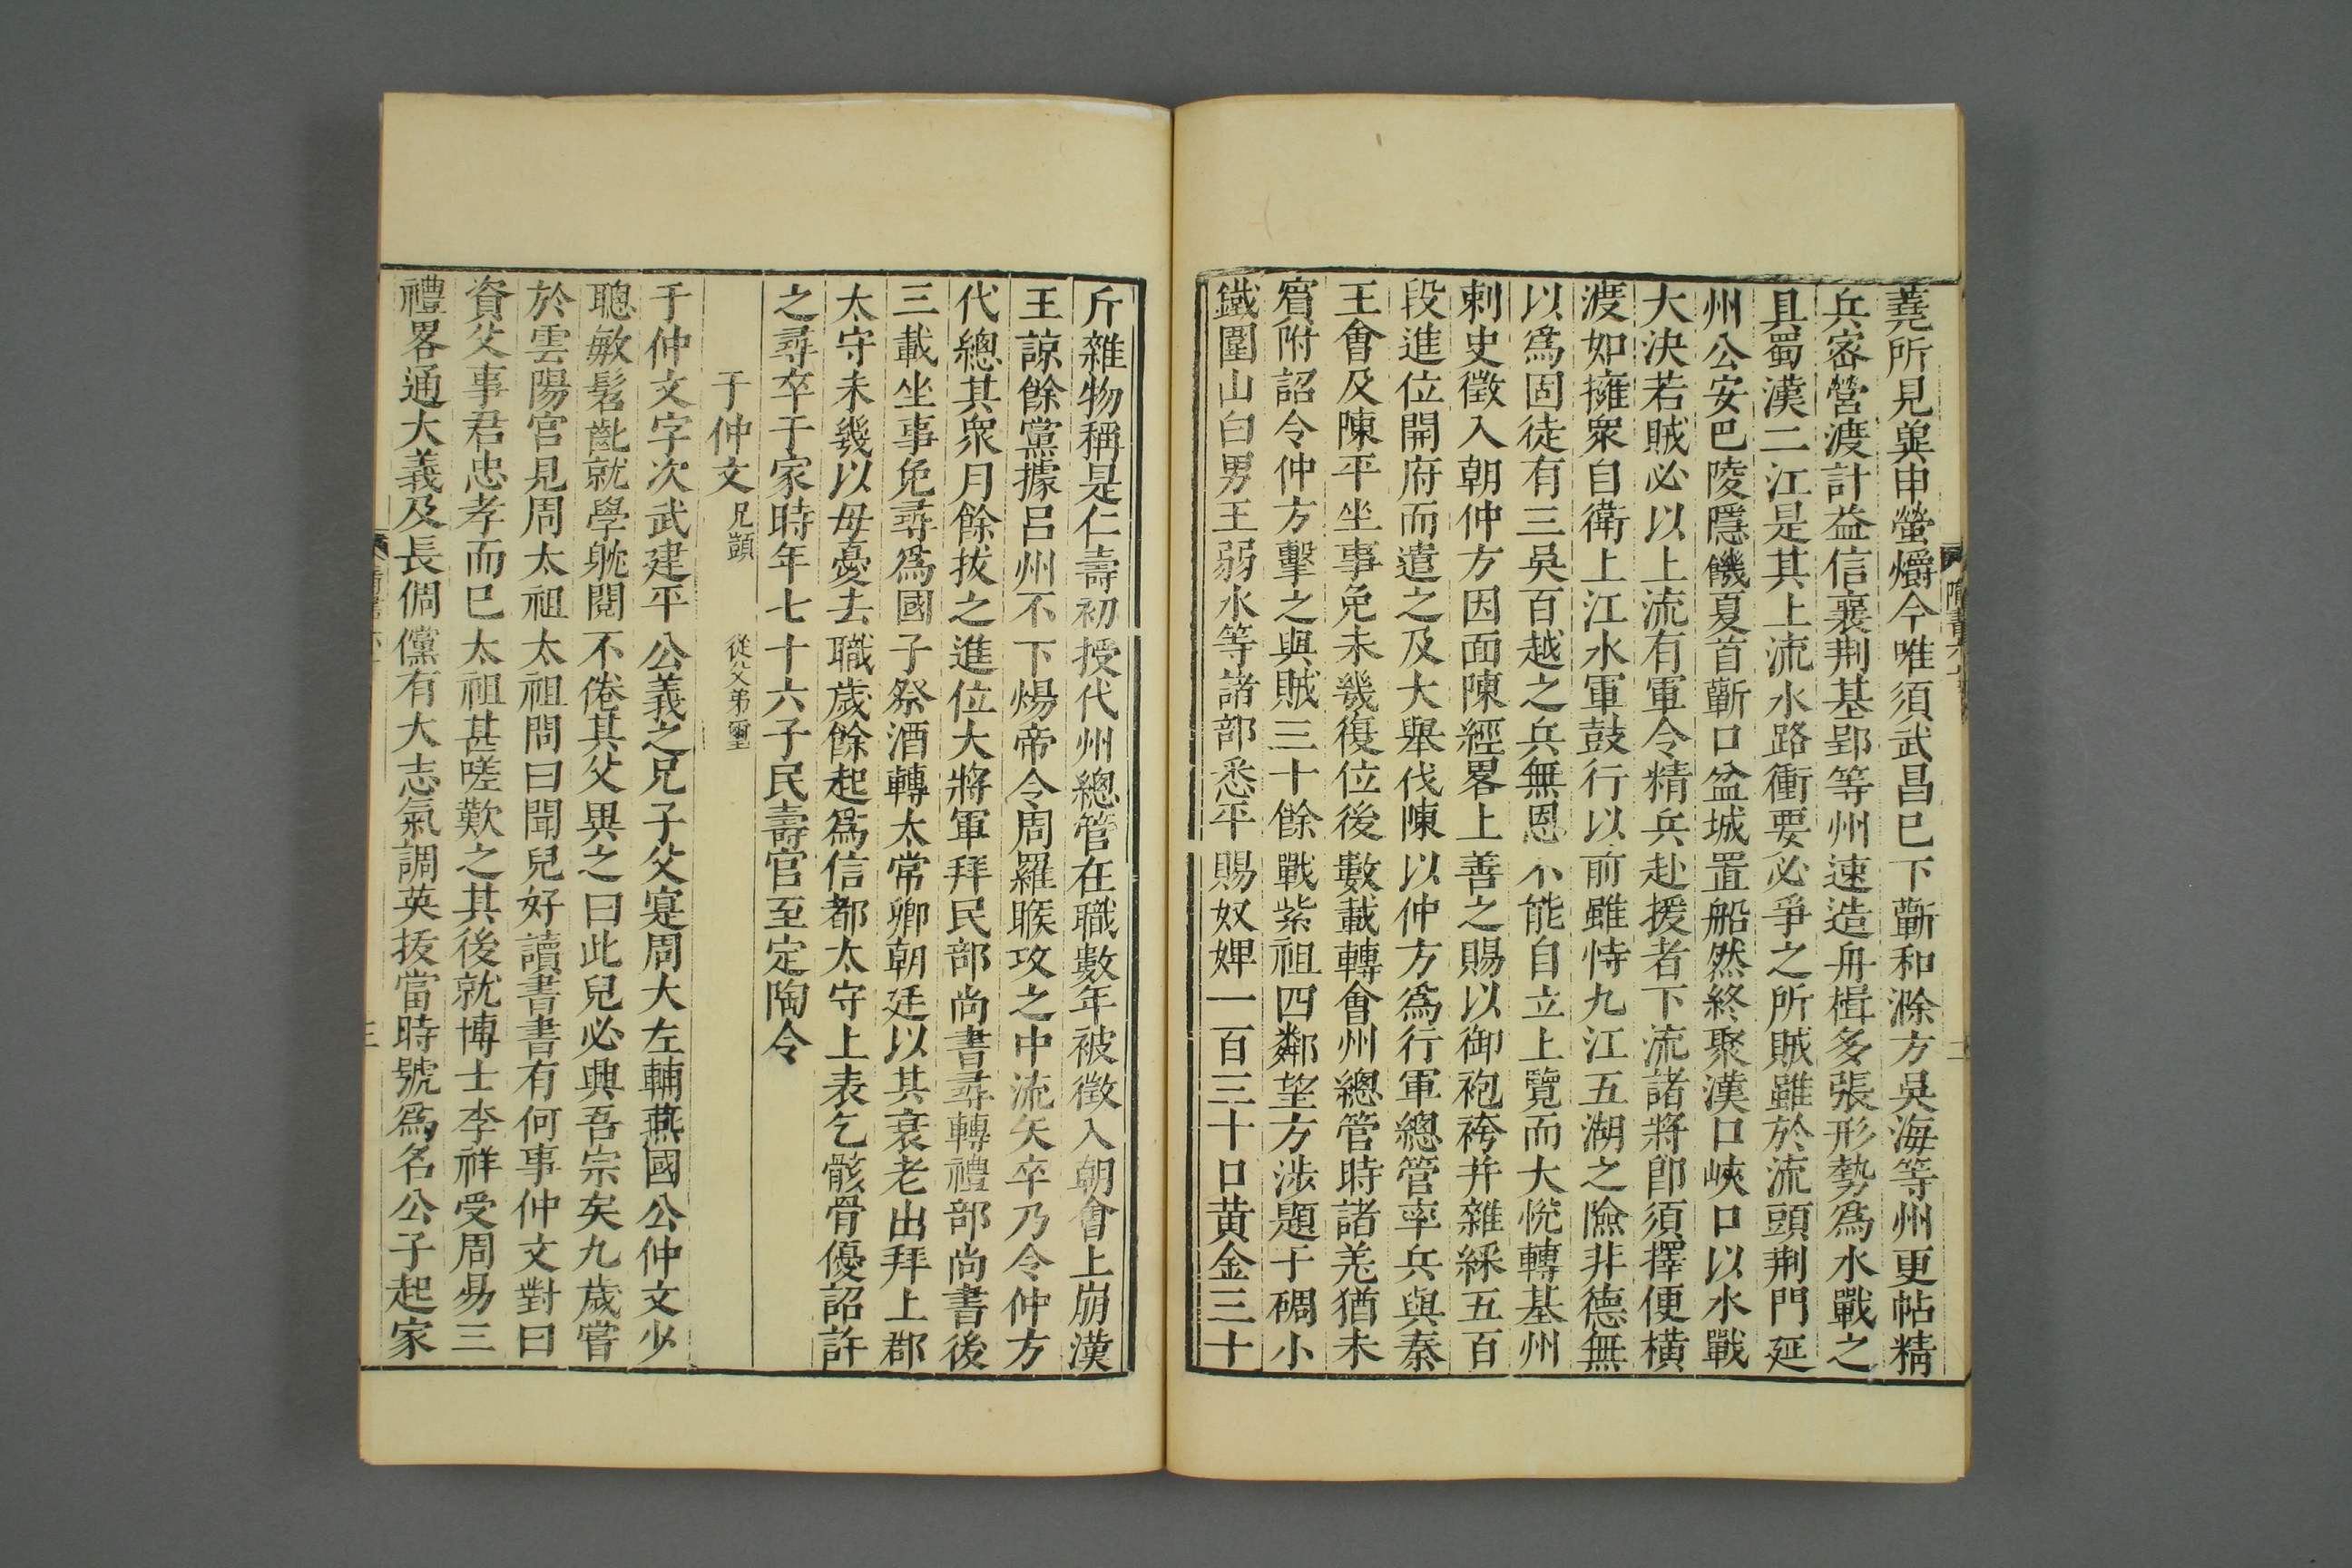 蕘所見冀申螢爝今唯須武昌已下蘄和滁方吳海等州更帖精
兵密營渡計益信襄荆基郢等州速造舟楫多張形勢爲水戰之
具蜀漢二江是其上流水路衝要必爭之所賊雖於流頭荆門延
州公安巴陵隱磯夏首蘄口盆城置船然終聚漢口峽口以水戰
大決若賊必以上流有軍令精兵赴援者下流諸將卽須擇便橫
渡如擁衆自衛上江水軍鼓行以前雖恃九江五湖之險非德無
以爲固徒有三吳百越之兵無恩不能自立上覽而大悅轉基州
刺史徵入朝仲方因面陳經畧上善之賜以御袍袴并雜綵五百
段進位開府而遣之及大舉伐陳以仲方爲行軍總管率兵與秦
王會及陳平坐事免未幾復位後數載轉會州總管時諸羌猶未
賓附詔令仲方擊之與賊三十餘戰紫祖四鄰望方涉題千碉小
鐵圍山白男王弱水等諸部悉平賜奴婢一百三十口黄金三十
斤雜物稱是仁壽初授代州總管在職數年被徵入朝會上崩漢
王諒餘黨據呂州不下煬帝令周羅睺攻之中流矢卒乃令仲方
代總其衆月餘拔之進位大將軍拜民部尚書尋轉禮部尚書後
三載坐事免尋爲國子祭酒轉太常卿朝廷以其衰老出拜上郡
太守未幾以母憂去職歲餘起爲信都太守上表乞骸骨優詔許
之尋卒于家時年七十六子民壽官至定陶令
于仲文 兄顗 從父弟璽
于仲文字次武建平公義之兄子父寔周大左輔燕國公仲文少
聰敏髫齓就學躭閱不倦其父異之曰此兒必興吾宗矣九歲嘗
於雲陽宫見周太祖太祖問曰聞兒好讀書書有何事仲文對曰
資父事君忠孝而已太祖甚嗟歎之其後就博士李祥受周易三
禮畧通大義及長倜儻有大志氣調英拔當時號爲名公子起家